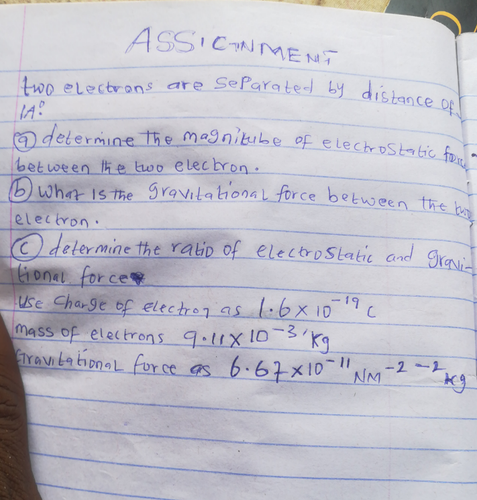 ASSIGNMENT
two electrons are separated by distance of
1A°
(a) determine the magnitube of electrostatic force
between the two electron.
(b) What is the gravitational force between the two
electron.
(c) determine the ratio of electrostatic and gravi-
tional force
Use charge of electron as 1.6 x 10⁻¹⁹ C
mass of electrons 9.11 x 10⁻³¹ kg
Gravitational force as 6.67 x 10⁻¹¹ NM⁻² ⁻² kg